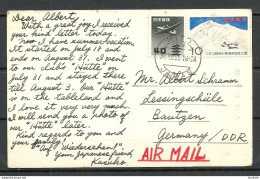 Dear Albert,
With a great joy I received
your kind letter today.
Now I have summer vacation.
It started on July 18 and
ends on August 31. I went
to see our "Hütte" on
July 31 and stayed there
till August 3. Our "Hütte"
is on the tableland and
I love it very very much.
I will send you a photo of
our "Hütte" later.
Kind regards to you and
your
"Auf Wiedersehen!"
your Japanese friend,
Kazuko.
日本郵便
日本郵便
10
Mr. Albert Schramm
Lessingschule
Bautzen
Germany/DDR
AIR MAIL